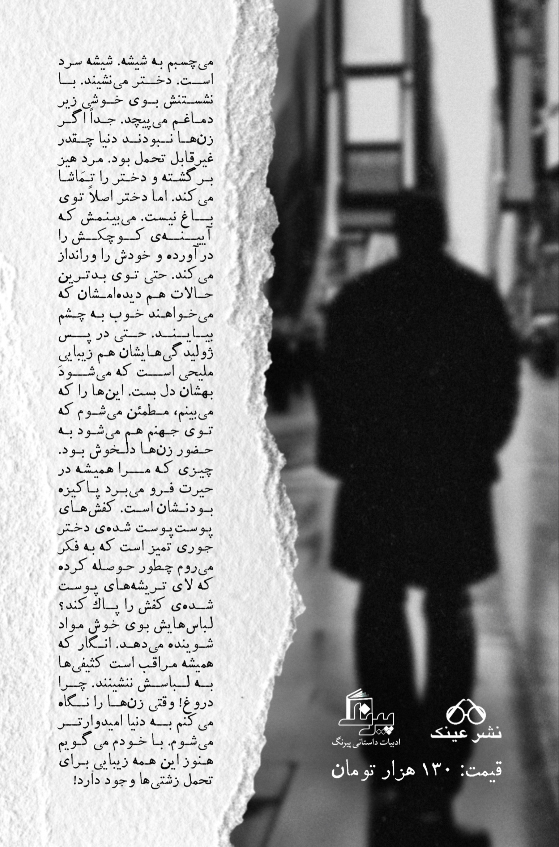 می‌چسبم به شیشه. شیشه سرد
است. دختر می‌نشیند. با
نشستنش بوی خوشی زیر
دماغم می‌پیچد. جداً اگر
زن‌ها نبودند دنیا چقدر
غیرقابل تحمل بود. مرد هیز
برگشته و دختر را تماشا
می‌کند. اما دختر اصلاً توی
باغ نیست. می‌بینمش که
آیینه‌ی کوچکش را
درآورده و خودش را ورانداز
می‌کند. حتی توی بدترین
حالات هم دیده‌امشان که
می‌خواهند خوب به چشم
بیایند. حتی در پس
ژولیدگی‌هایشان هم زیبایی
ملیحی است که می‌شود
بهشان دل بست. این‌ها را که
می‌بینم، مطمئن می‌شوم که
توی جهنم هم می‌شود به
حضور زن‌ها دلخوش بود.
چیزی که مرا همیشه در
حیرت فرو می‌برد پاکیزه
بودنشان است. کفش‌های
پوست‌پوست شده‌ی دختر
جوری تمیز است که به فکر
می‌روم چطور حوصله کرده
که لای تریشه‌های پوست
شده‌ی کفش را پاک کند؟
لباس‌هایش بوی خوش مواد
شوینده می‌دهد. انگار که
همیشه مراقب است کثیفی‌ها
به لباسش ننشینند. چرا
دروغ! وقتی زن‌ها را نگاه
می‌کنم به دنیا امیدوارتر
می‌شوم. با خودم می‌گویم
هنوز این همه زیبایی برای
تحمل زشتی‌ها وجود دارد!
پیرنگ
ادبیات داستانی پیرنگ
نشر عینک
قیمت: ۱۳۰ هزار تومان